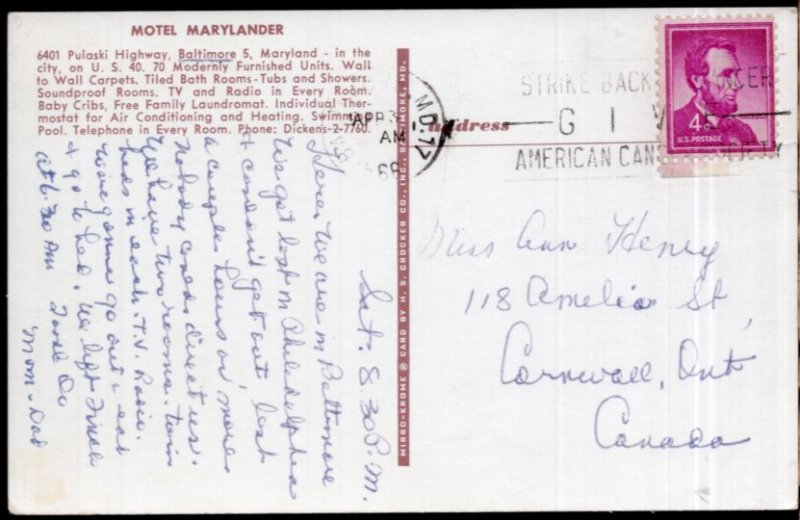 MOTEL MARYLANDER
6401 Pulaski Highway, Baltimore 5, Maryland - in the
city, on U. S. 40. 70 Modernly Furnished Units. Wall
to Wall Carpets. Tiled Bath Rooms-Tubs and Showers.
Soundproof Rooms. TV and Radio in Every Room.
Baby Cribs, Free Family Laundromat. Individual Ther-
mostat for Air Conditioning and Heating. Swimming
Pool. Telephone in Every Room. Phone: Dickens-2-7760.
Sat. 8.30 P.M.
Here We are in Baltimore
We got lost in Philadelphia
& couldn't get out, lost
a couple hours or more
Nobody could direct us.
We have two rooms. twin
beds in each. T.V. Radio.
Were gonna go out & eat
& go to bed. We left
at 6.30 AM
Mom & Dad
MIRRO-KROME ® CARD BY H. S. CROCKER CO., INC., BALTIMORE, MD.
address
MD.
APR 3
AM
STRIKE BACK
GIV
AMERICAN CAN
4¢
U.S. POSTAGE
Miss Ann Henry
118 Amelia St,
Cornwall, Ont
Canada